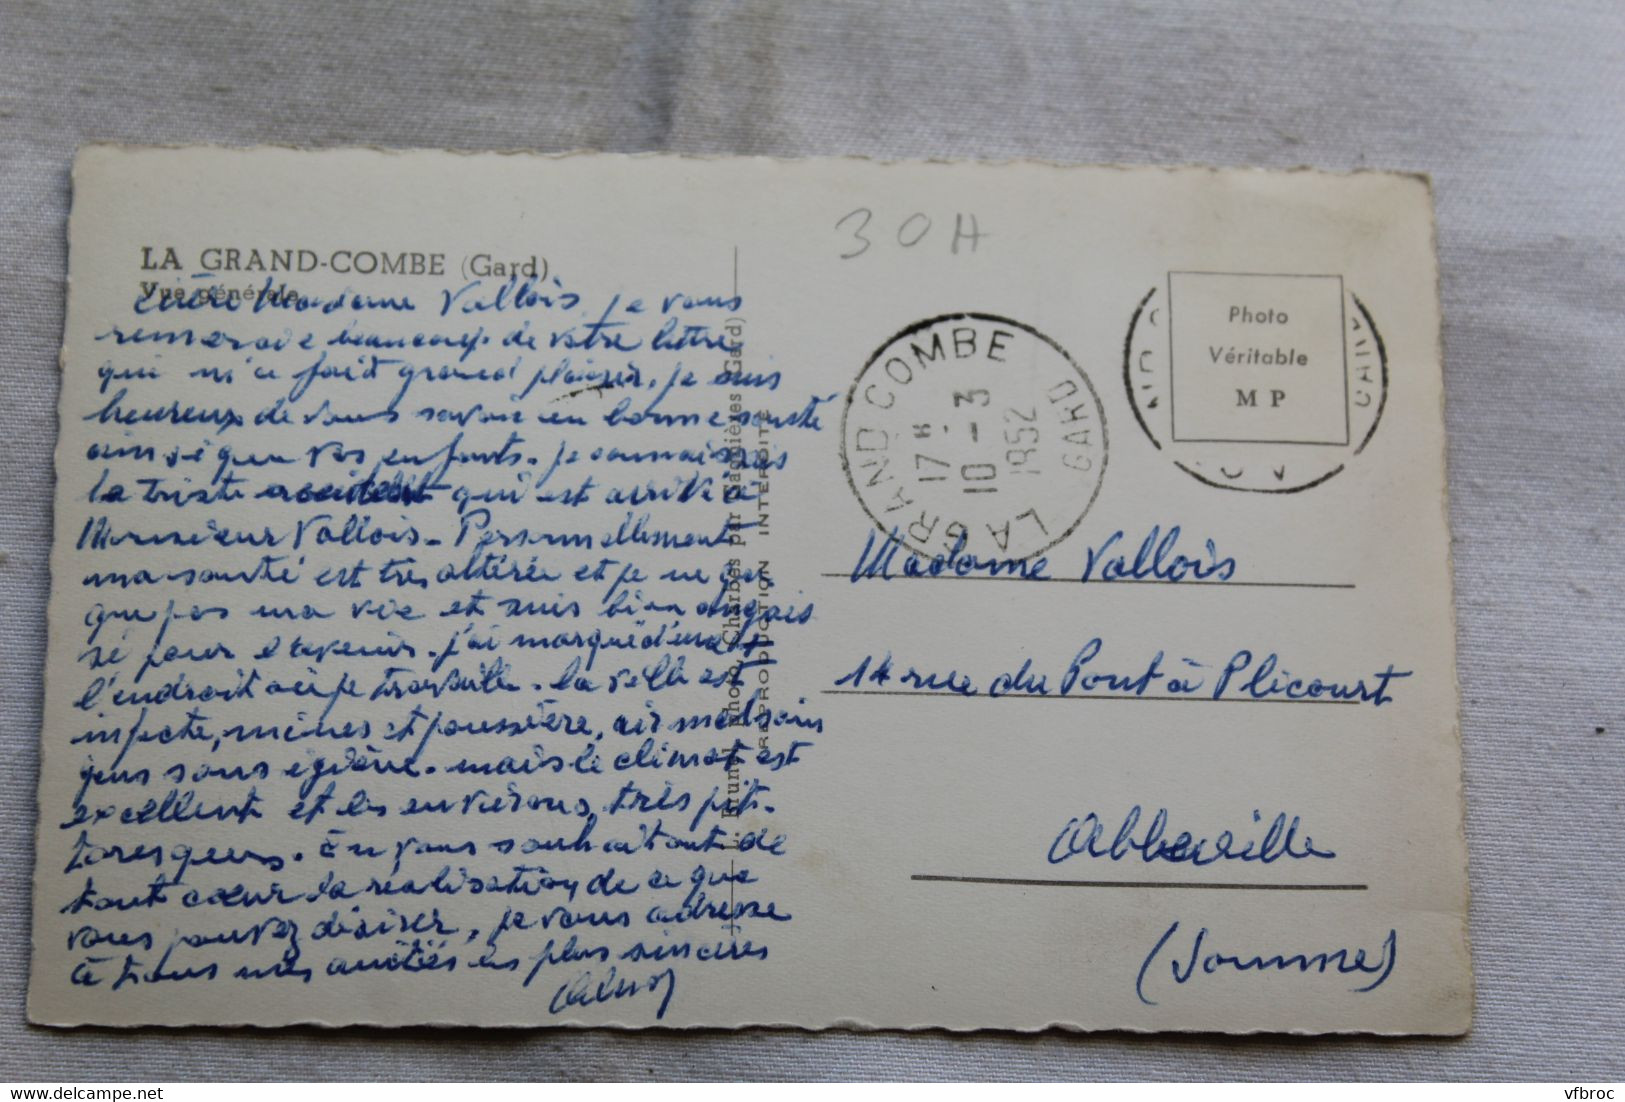 LA GRAND-COMBE (Gard)
Vue générale
Chère Madame Vallois, je vous
remercie beaucoup de votre lettre
qui m'a fait grand plaisir, je suis
heureux de vous savoir en bonne santé
ainsi que vos enfants. je connaissais
la triste accident qui est arrivé à
Monsieur Vallois. Personnellement
ma santé est très altérée et je ne
que pas ma vie et suis bien angois
sé pour l'avenir. j'ai marqué d'une
l'endroit où je travaille. la ville est
infecte, mines et poussière, air mal sain
gens sans . mais le climat est
excellent et les environs, très pit-
toresques. En vous souhaitant de
tout cœur la réalisation de ce que
vous pouvez désirer, je vous adresse
à tous mes amitiés les plus sincères
L. Brunel, Photo, Charbes par Gagnières (Gard)
REPRODUCTION INTERDITE
30 H
LA GRAND COMBE
17 H
10 - 3
1952
GARD
Photo
Véritable
M P
Madame Vallois
14 rue du Pont à Plicourt
Abbeville
(Somme)
vfbroc